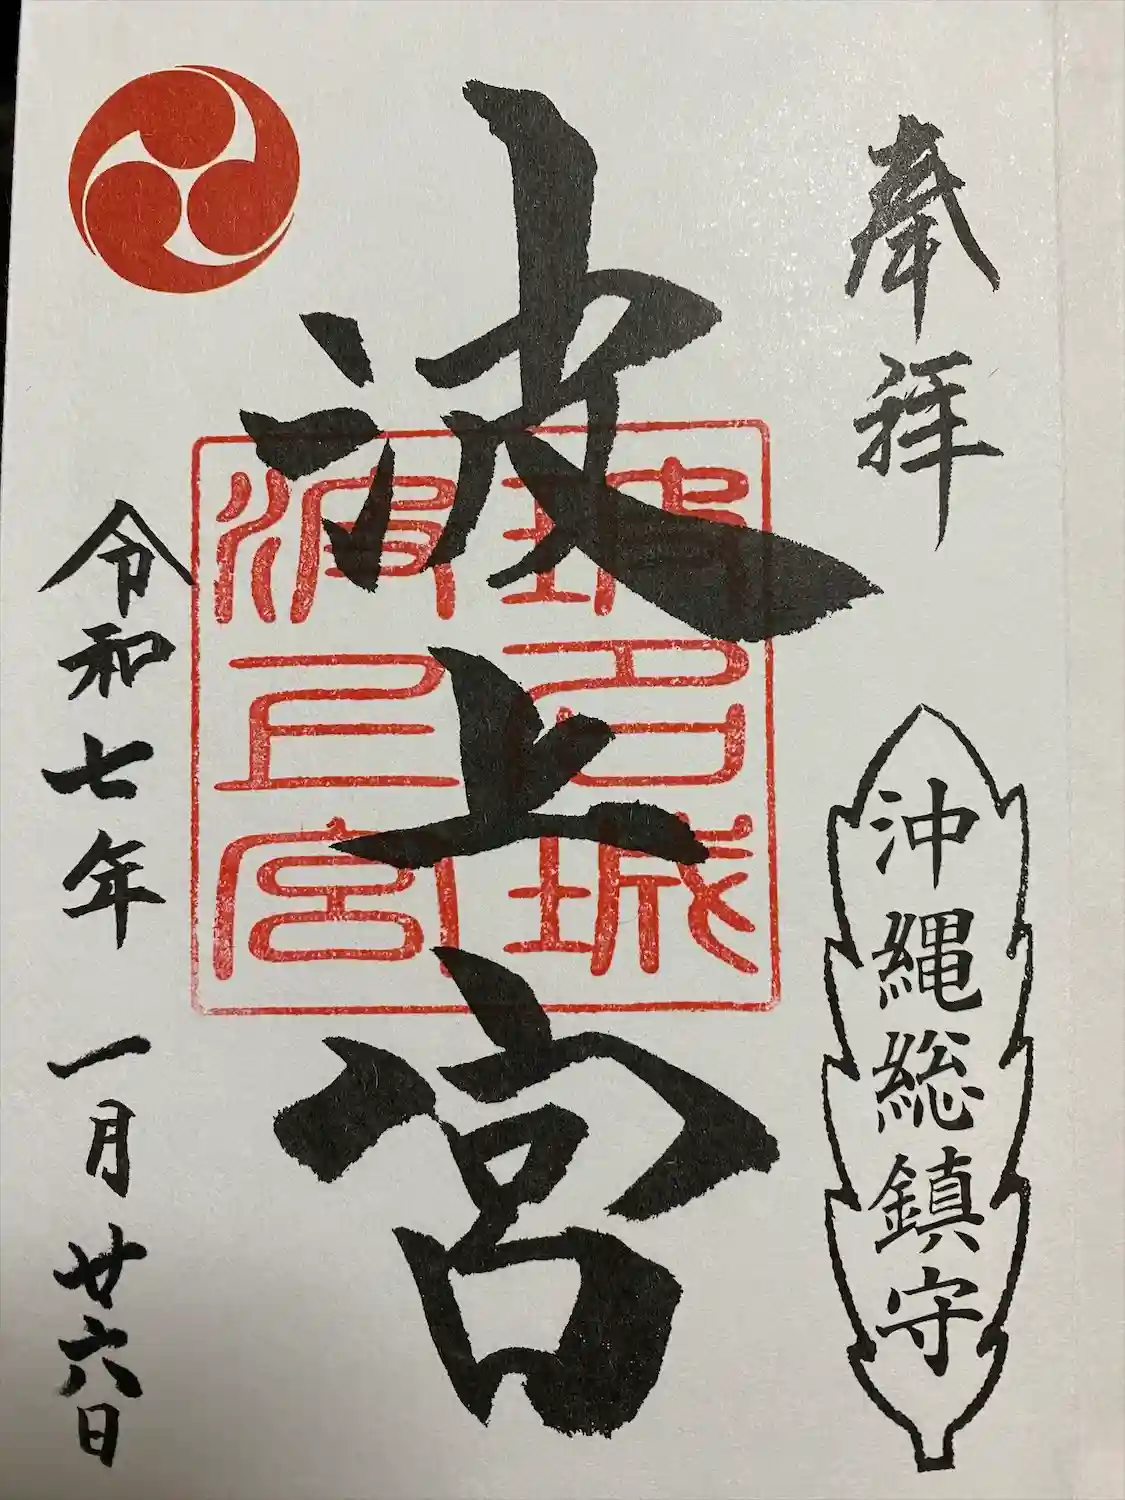 奉拝
沖縄総鎮守
波上宮
琉球
名城
波上宮
令和七年 一月 廿六日